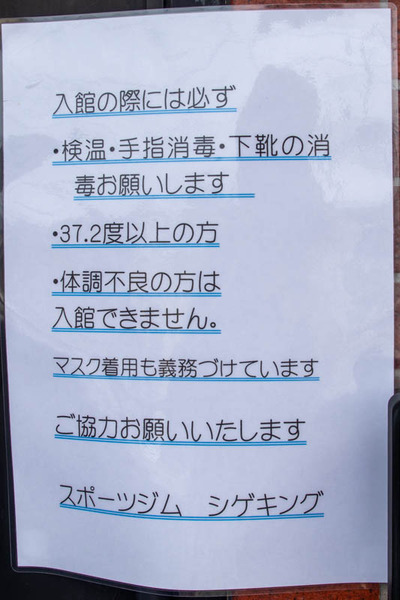 入館の際には必ず
・検温・手指消毒・下靴の消
毒お願いします
・37.2度以上の方
・体調不良の方は
入館できません。
マスク着用も義務づけています
ご協力お願いいたします
スポーツジム　シゲキング